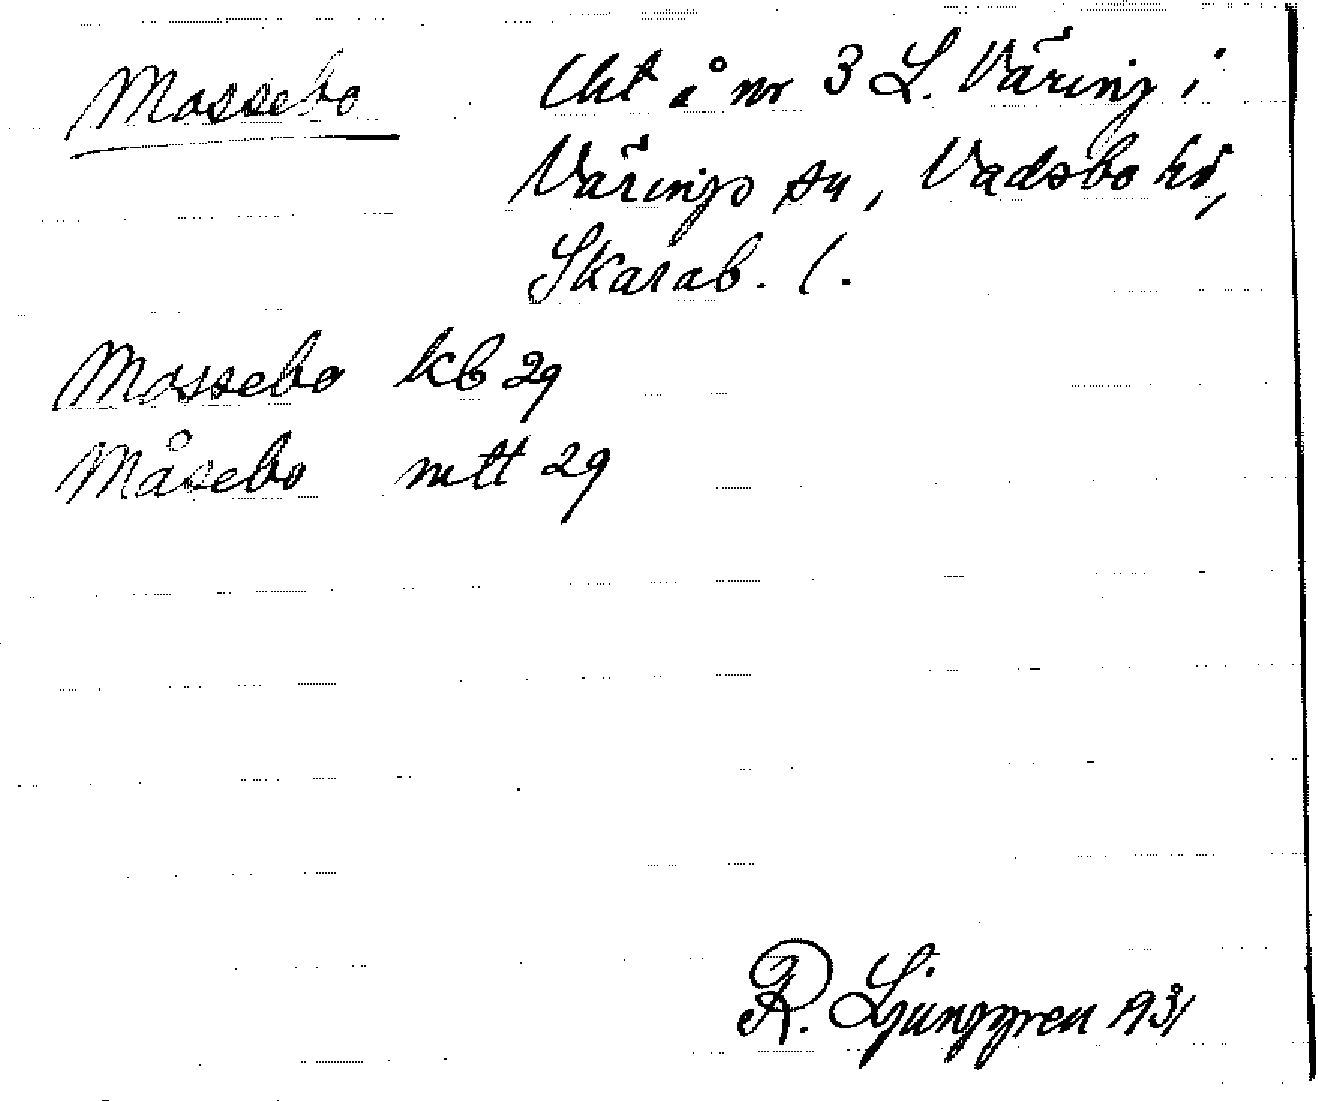 Mossebo Lht å nr 3 L. Väring i
Värings sn, Vadsbo hd,
Skarab. l.
Mossebo kb 29
Måsebo mtt 29
R. Ljunggren 1931